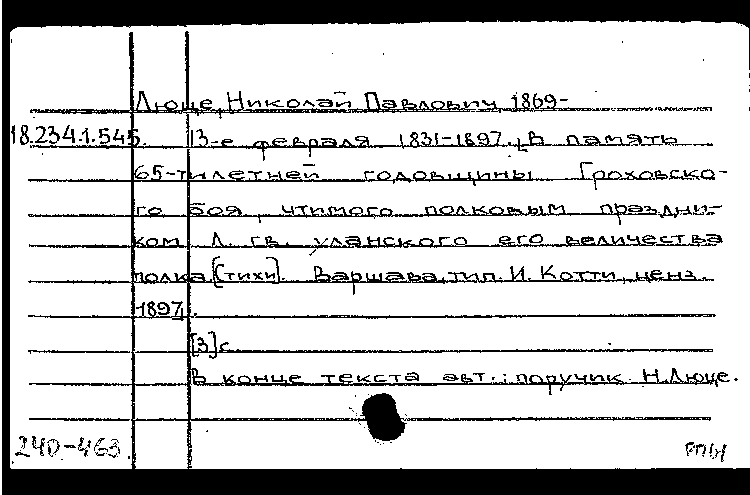 Люце, Николай Павлович, 1869-
18.234.1.545. 13-е февраля 1831-1897. [В память
65-тилетней годовщины Гроховско-
го боя, чтимого полковым праздни-
ком Л. гв. уланского его величества
полка. Стихи]. Варшава, тип. И. Котти, ценз.
1897].
[3]с.
В конце текста авт.: поручик Н.Люце.
240-463